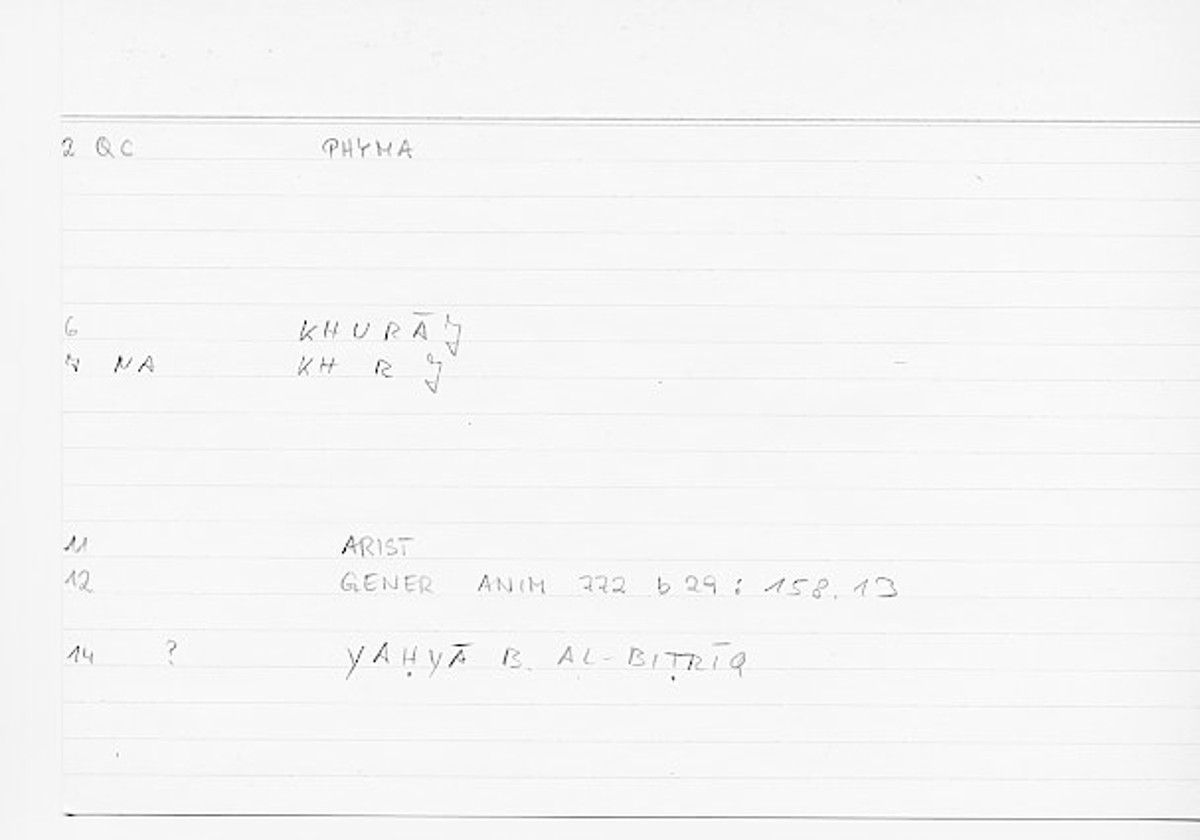 2 QC PHYMA
6 KHURĀJ
7 NA KH R J
11 ARIST
12 GENER ANIM 772 b 29 : 158.13
14 ? YAḤYĀ B. AL-BIṬRĪQ